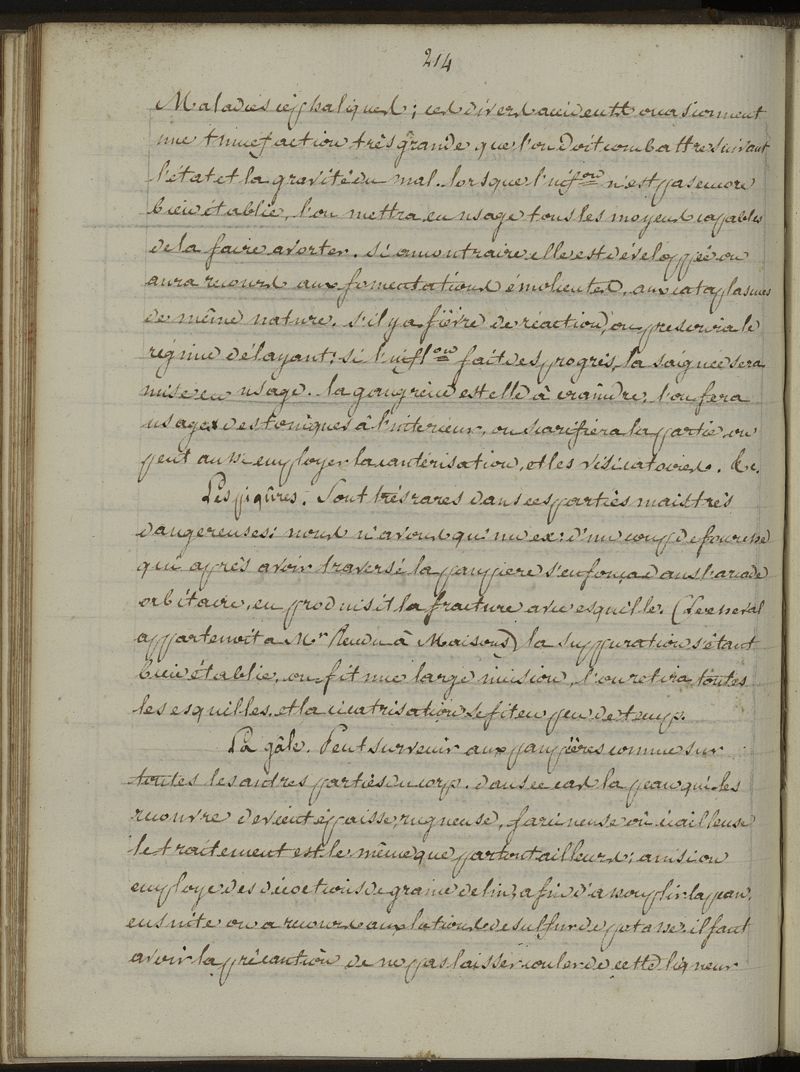 214
Maladies céphaliques; ces divers accidents occasionnent
une tumefaction très grande que l'on doit combattre suivant
l'état et la gravité du mal. lorsque l'infon n'est pas encore
bien établie, l'on mettra en usage tous les moyens capables
de la faire avorter. si au contraire elle est développée on
aura recours aux fomentations émolientes, aux cataplasmes
de même nature. s'il y a fièvre de réaction, on prescrira le
régime délayant: si l'inflon fait des progrès, la saignée sera
mise en usage. la gangrène est elle à craindre, l'on fera
usage des toniques à l'interieur, on scarifiera la partie, on
peut aussi employer la cautérisation, et les vésicatoires. &c.
Les piqûres. Sont très rares dans ces parties mais très
dangereuses: nous n'avons qu'un ex: d'un coup de fourche
qui après avoir traversé la paupiere s'enfonça dans l'arcade
orbitaire, en produisit la fracture avec esquille. (Le cheval
appartenoit a Mr à Maisons) la suppuration s'étant
bien établie, on fit une large incision, l'on retira toutes
les esquilles, et la cicatrisation se fit en peu de temps.
La gâle. Peut survenir aux paupières comme sur
toutes les autres parties du corp. dans ce cas la peau qui les
recouvre devient épaisse, rugueuse, farineuse où écailleuse
le traitement est le même que partout ailleurs: ainsi on
employe des décoctions de graine de lin, afin d'assouplir la peau,
ensuite on a recours aux lotions de sulfur de potasse. il faut
avoir la précaution de ne pas laisser couler de cette liqueur